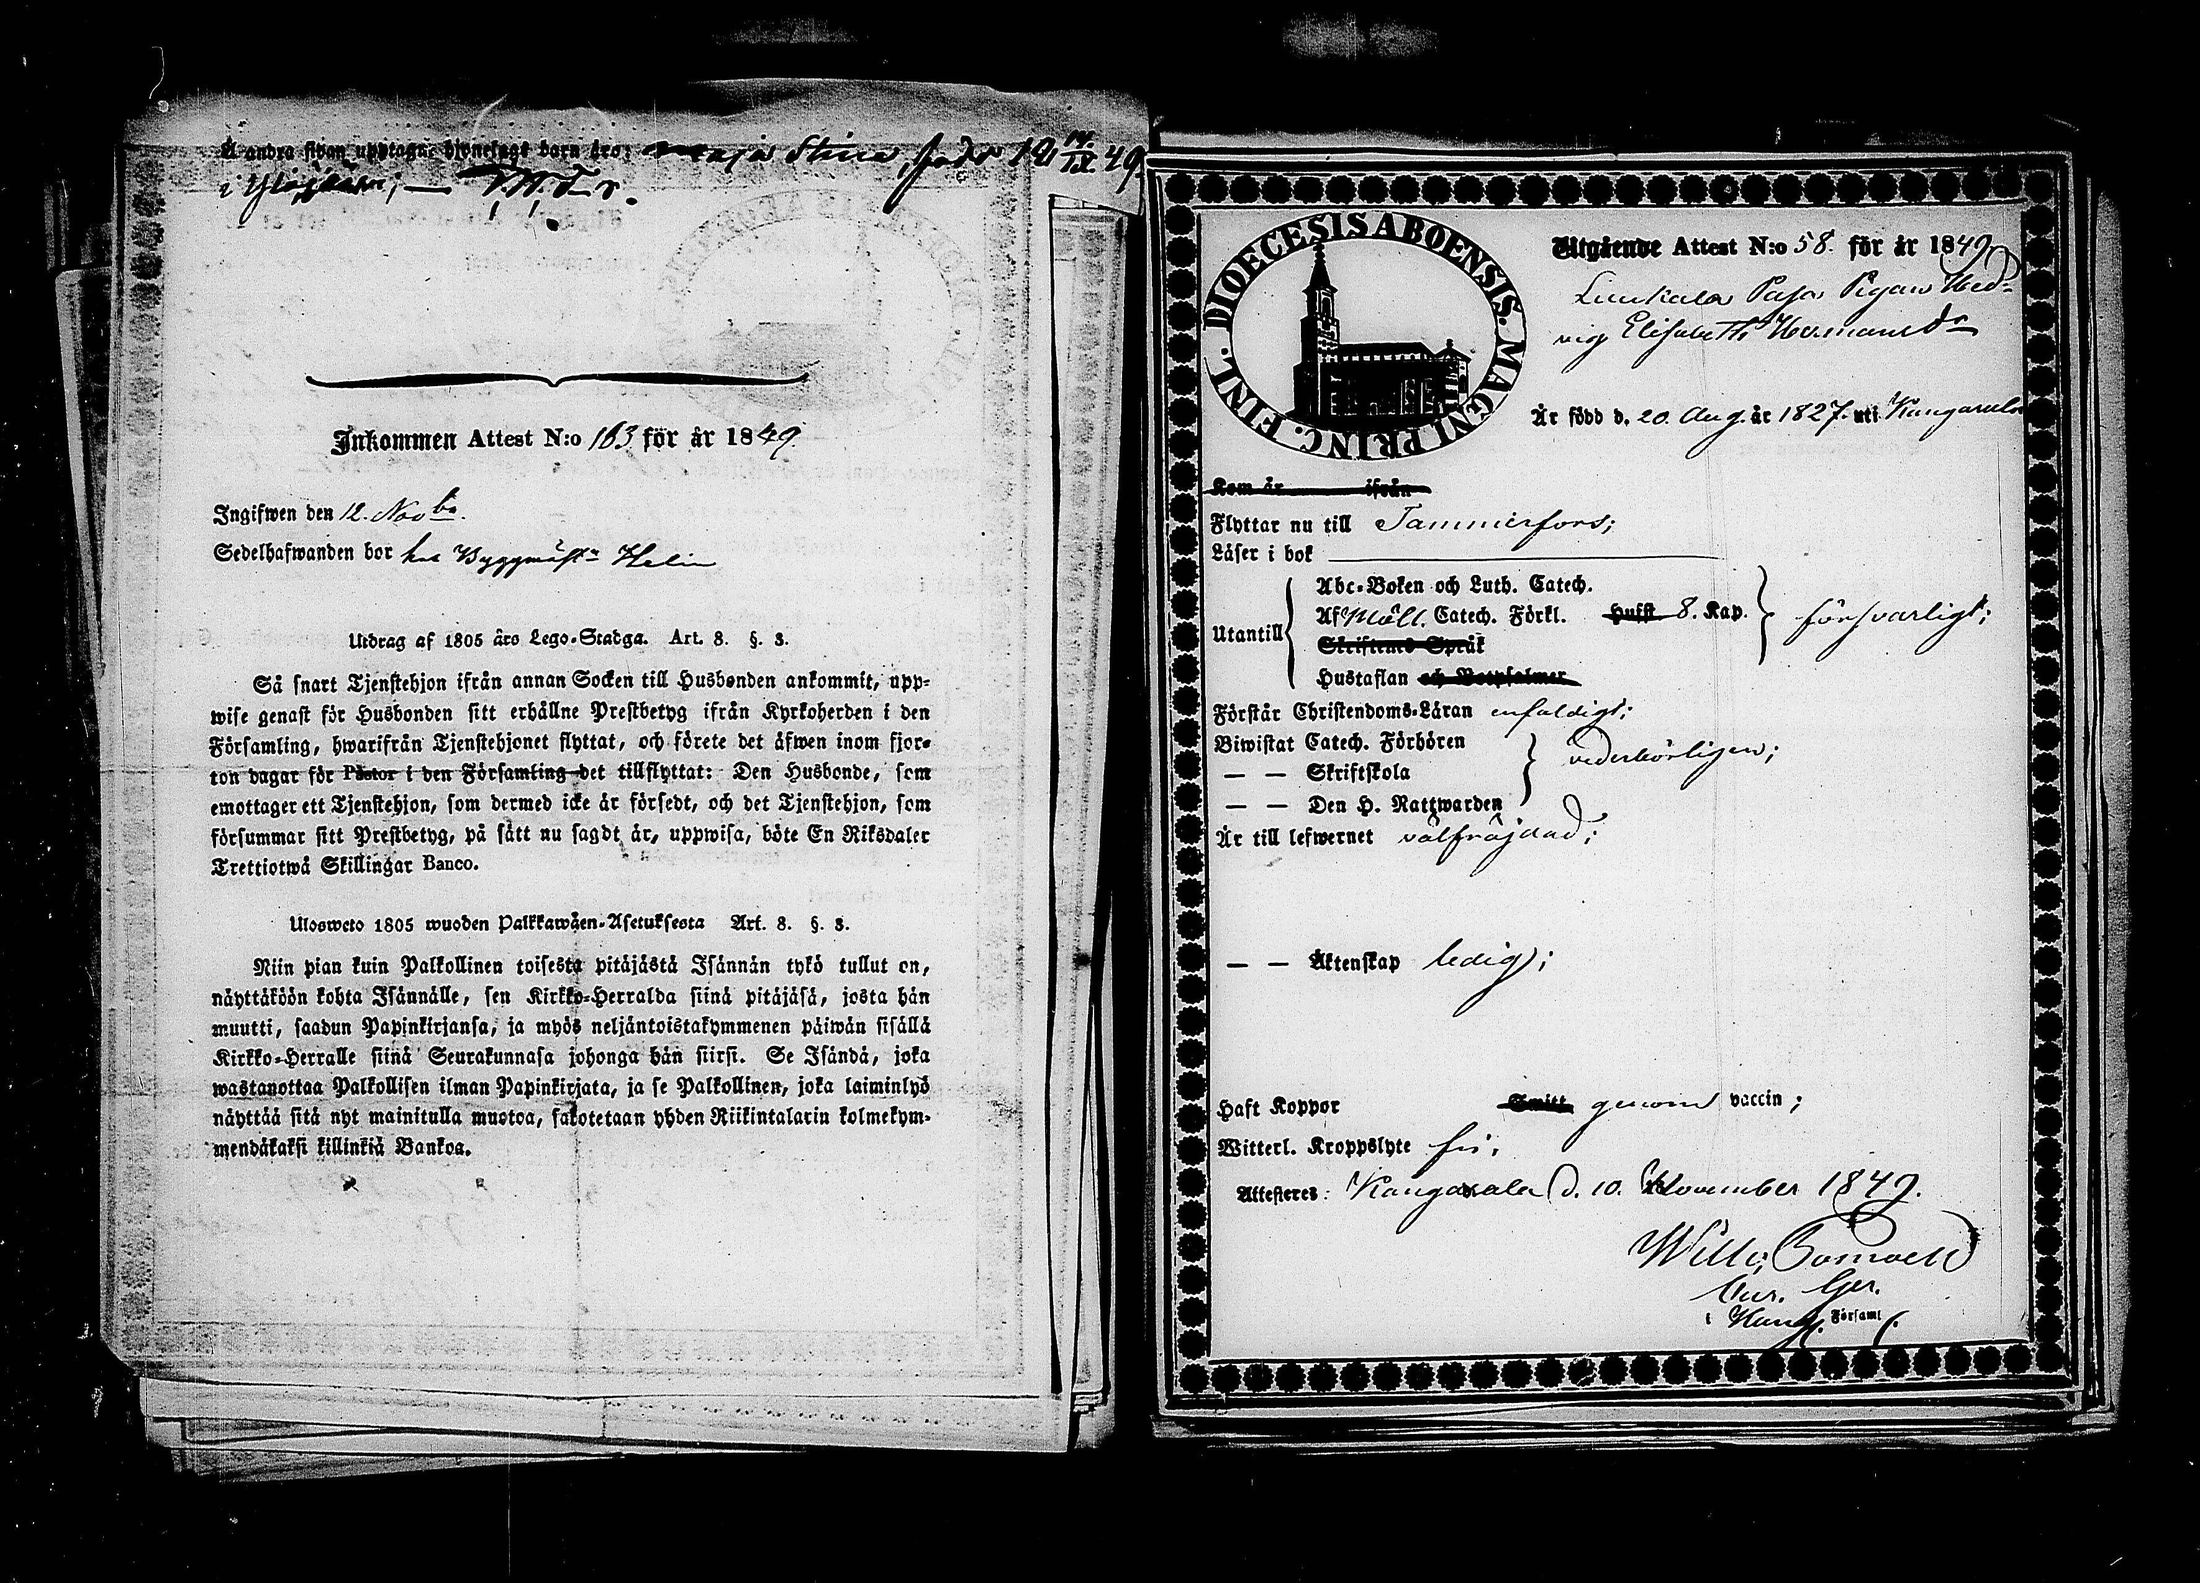 Å andra sidan upptagne hjonelags barn äro: Maja Stina, född 18 49.
i Ylöjärvi; —
Inkommen Attest N:o 163 för år 1849.
Ingifwen den 12. Novbr.
Sedelhafwanden bor hos Byggmäst. Helin
Utdrag af 1805 års Lego-Stadga. Art. 8. §. 3.
Så snart Tjenstehjon ifrån annan Socken till Husbonden ankommit, upp-
wise genast för Husbonden sitt erhållne Prestbetyg ifrån Kyrkoherden i den
Församling, hwarifrån Tjenstehjonet flyttat, och förete det äfwen inom fjor-
ton dagar för Pastor i den Församling det tillflyttat: Den Husbonde, som
emottager ett Tjenstehjon, som dermed icke är försedt, och det Tjenstehjon, som
försummar sitt Prestbetyg, på sätt nu sagdt är, uppwisa, böte En Riksdaler
Trettiotwå Skillingar Banco.
Ulosweto 1805 wuoden Palkkawäen-Asetuksesta Art. 8. §. 3.
Niin pian kuin Palkollinen toisesta pitäjästä Isännän tykö tullut on,
näyttäköön kohta Isännälle, sen Kirkko-Herralda siinä pitäjäsä, josta hän
muutti, saadun Papinkirjansa, ja myös neljäntoistakymmenen päiwän sisällä
Kirkko-Herralle siinä Seurakunnasa johonga hän siirsi. Se Isändä, joka
wastanottaa Palkollisen ilman Papinkirjata, ja se Palkollinen, joka laiminlyö
näyttää sitä nyt mainitulla muotoa, sakotetaan yhden Riikintalarin kolmekym-
mendäkaksi killinkiä Bankoa.
DIOECESIS ABOENSIS. MAGNI PRINC. FINL.
Utgående Attest N:o 58. för år 1849
Liuksala Paja Pigan Hed-
vig Elisabeth Hermansdr
Är född d. 20. Aug. år 1827. uti Kangasala
Kom år ifrån
Flyttar nu till Tammerfors;
Läser i bok
Abc-Boken och Luth. Catech.
Utantill Af Möll. Catech. Förkl. Hufst 8. Kap. försvarligt;
Skriftens Språk
Hustaflan och Botpsalmer
Förstår Christendoms-Läran enfaldigt;
Biwistat Catech. Förhören
— — Skriftskola vederbörligen;
— — Den H. Nattwarden
Är till lefwernet välfräjdad;
— — Äktenskap ledig;
Haft Koppor Smitt genom vaccin;
Witterl. Kroppslyte fri;
Attesteres: Kangasala d. 10. November 1849.
Wilh.
Cur. Ger.
i Kang. Församl.